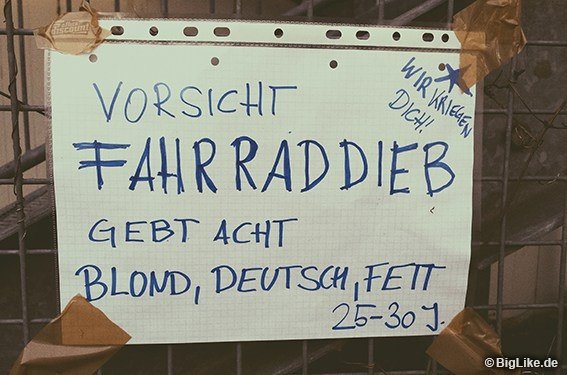 VORSICHT
FAHRRADDIEB
GEBT ACHT
BLOND, DEUTSCH, FETT
25-30 J.
WIR KRIEGEN
DICH!
discount
© BigLike.de